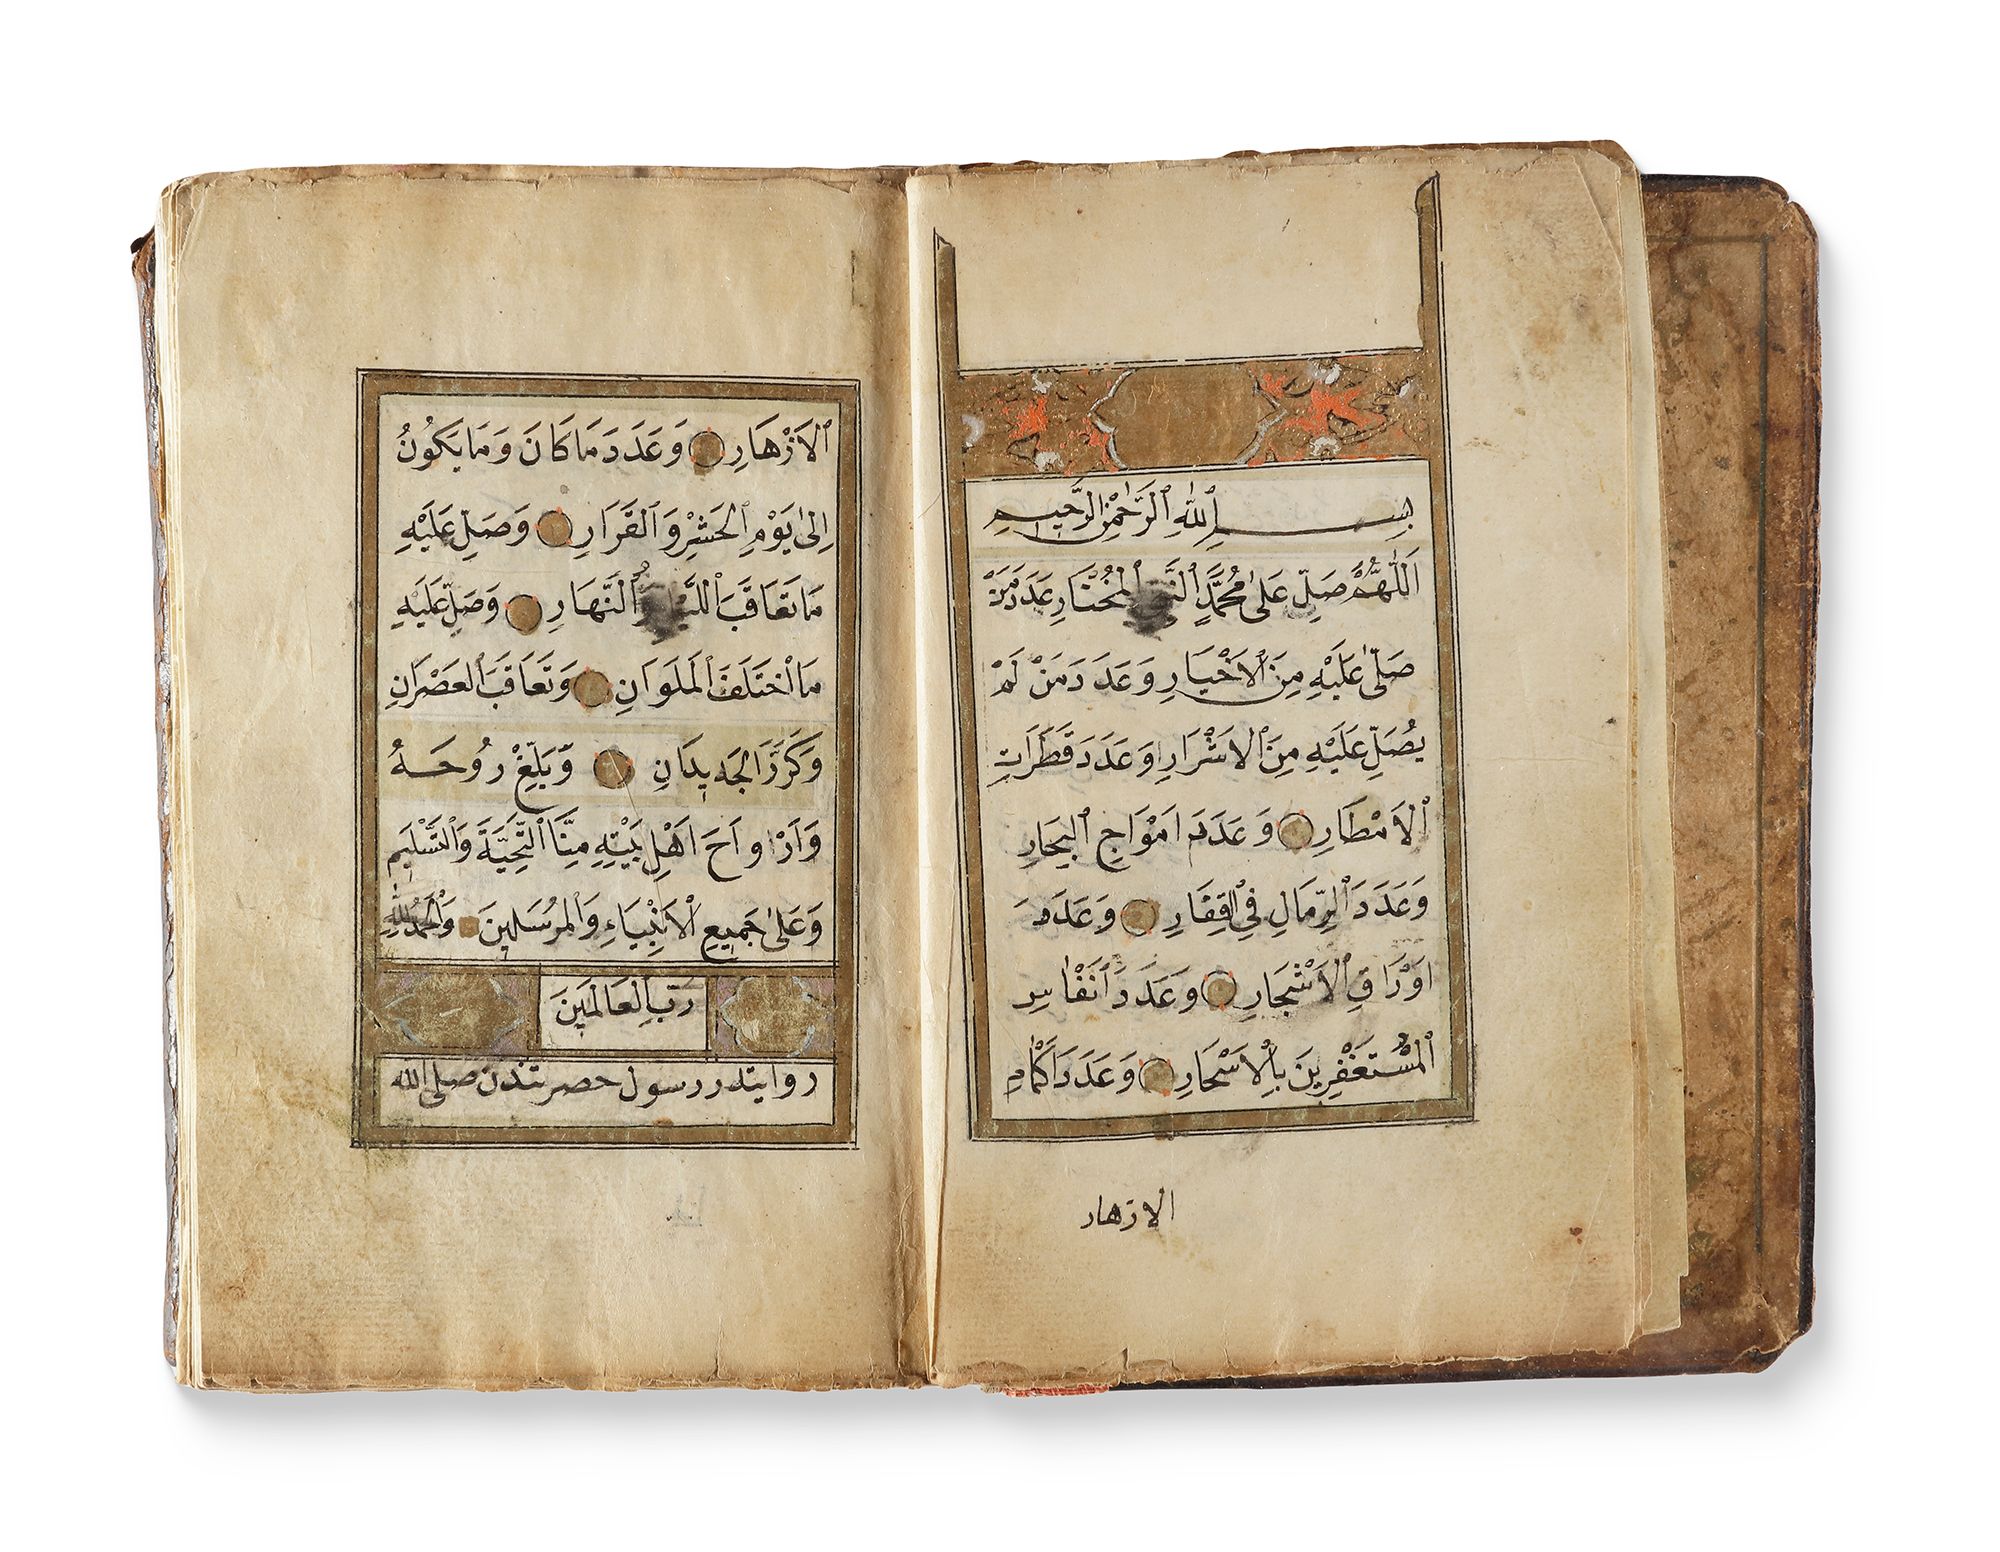 بِسْمِ ٱللّٰهِ ٱلرَّحْمٰنِ ٱلرَّحِيمِ
اَللّٰهُمَّ صَلِّ عَلٰى مُحَمَّدٍ ٱلنَّبِيِّ ٱلْمُخْتَارِ عَدَدَ مَنْ
صَلّٰى عَلَيْهِ مِنَ ٱلْاَخْيَارِ وَعَدَدَ مَنْ لَمْ
يُصَلِّ عَلَيْهِ مِنَ ٱلْاَشْرَارِ وَعَدَدَ قَطَرَاتِ
ٱلْاَمْطَارِ وَعَدَدَ اَمْوَاجِ ٱلْبِحَارِ
وَعَدَدَ ٱلرِّمَالِ فِي ٱلْقِفَارِ وَعَدَدَ
اَوْرَاقِ ٱلْاَشْجَارِ وَعَدَدَ اَنْفَاسِ
ٱلْمُسْتَغْفِرِينَ بِٱلْاَسْحَارِ وَعَدَدَ اَكْمَامِ
الازهار
ٱلْاَزْهَارِ وَعَدَدَ مَا كَانَ وَمَا يَكُونُ
اِلٰى يَوْمِ ٱلْحَشْرِ وَٱلْقَرَارِ وَصَلِّ عَلَيْهِ
مَا تَعَاقَبَ ٱللَّيْلُ وَٱلنَّهَارِ وَصَلِّ عَلَيْهِ
مَا ٱخْتَلَفَ ٱلْمَلَوَانِ وَتَعَاقَبَ ٱلْعَصْرَانِ
وَكَرَّرَ ٱلْجَدِيدَانِ وَبَلِّغْ رُوحَهُ
وَاَرْوَاحَ اَهْلِ بَيْتِهِ مِنَّا ٱلتَّحِيَّةَ وَٱلتَّسْلِيمَ
وَعَلٰى جَمِيعِ ٱلْاَنْبِيَاءِ وَٱلْمُرْسَلِينَ وَٱلْحَمْدُ لِلّٰهِ
رَبِّ ٱلْعَالَمِينَ
روايتدر رسول حضرتندن صلى الله